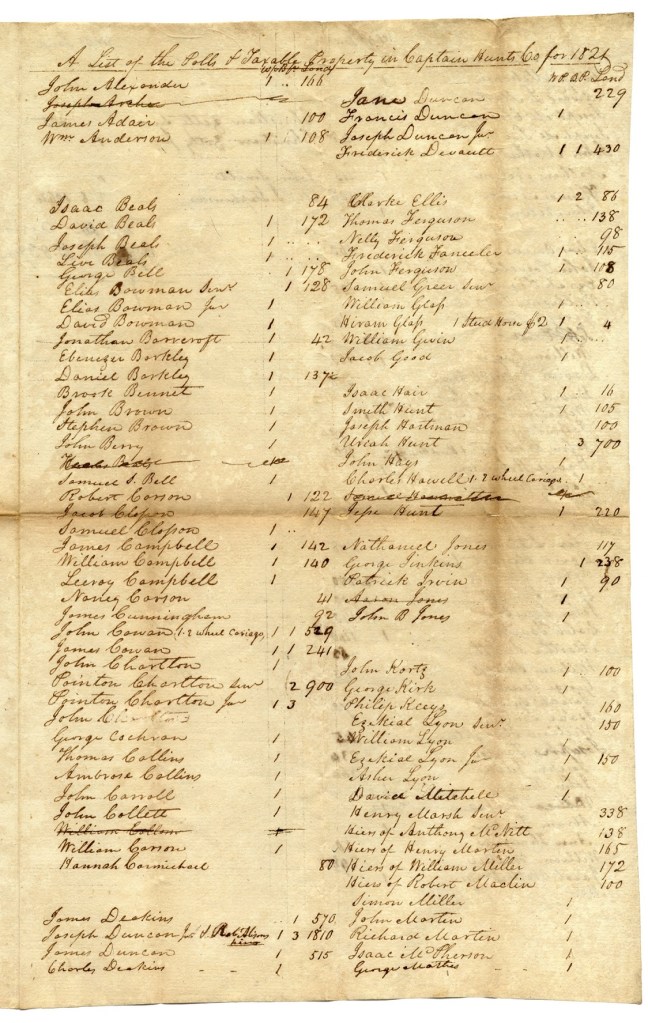 A List of the Polls & Taxable Property in Captain Hunts Co for 1821
W.P. B.P. Land
John Alexander 1 .. 166
Joseph Archer
James Adair 100
Wm Anderson 1 108
Isaac Beals 84
David Beals 1 172
Joseph Beals 1 .. ..
Beals 1
George Bell 1 178
Elias Bowman Senr 1 128
Elias Bowman Jur 1
David Bowman 1
Jonathan Barrcroft 1 42
Ebenezer Barkley 1
Daniel Barkley 1 137½
Brook Bennet 1
John Brown 1
Stephen Brown 1
John Berry 1
Samuel S. Bell 1
Robert Carson 1 122
Jacob Closson 147
Samuel Closson 1 ..
James Campbell 1 142
William Campbell 1 140
Leeroy Campbell 1
Nancy Carson 41
James Cunningham 92
John Cowan, 1. 2 wheel Cariage, 1 1 529
James Cowan 1 1 241
John Charlton 1
Pointon Charlton Senr 2 900
Pointon Charlton Jur 1 3
John
George Cochran 1
Thomas Collins 1
Ambrose Collins 1
John Carroll 1
John Collett 1
William
William Carson 1
Hannah Carmichael 80
James Deakins .. 1 570
Joseph Duncan Jur & Robt heirs 1 3 1810
James Duncan 1 515
Charles Deakins - - 1
W.P. B.P. Land
Jane Duncan 229
Francis Duncan 1
Joseph Duncan Jur 1
Frederick Devault 1 1 430
Clarke Ellis 1 2 86
Thomas Ferguson .. .. 138
Nelly Ferguson 98
Frederick 1 .. 115
John Ferguson 1 108
Samuel Greer Senr 80
William Glass 1 ..
Hiram Glass 1 Stud Horse $2 1 4
William Givin 1 .. ..
Jacob Good 1
Isaac Hair 1 .. 16
Smith Hunt 1 105
Joseph Hartman 100
Uriah Hunt 3 700
John Hays 1
Charles Howell 1. 2 wheel Cariage 1
Jesse Hunt 1 220
Nathaniel Jones 117
George Jinkins 1 238
Patrick Irvin 1 90
Aaron Jones 1
John B Jones 1
John Kortz 1 .. 100
George Kirk 1
Philip Keeys 160
Ezekial Lyon Senr 150
William Lyon 1
Ezekial Lyon Jur 1 150
Asher Lyon 1
David Mitchell 1
Henry Marsh Senr 338
Hiers of Anthony McNitt 138
Hiers of Henry Martin 165
Hiers of William Miller 172
Hiers of Robert Maclin 100
Simon Miller 1
John Martin 1
Richard Martin 1
Isaac McPherson 1
George Mathes 1